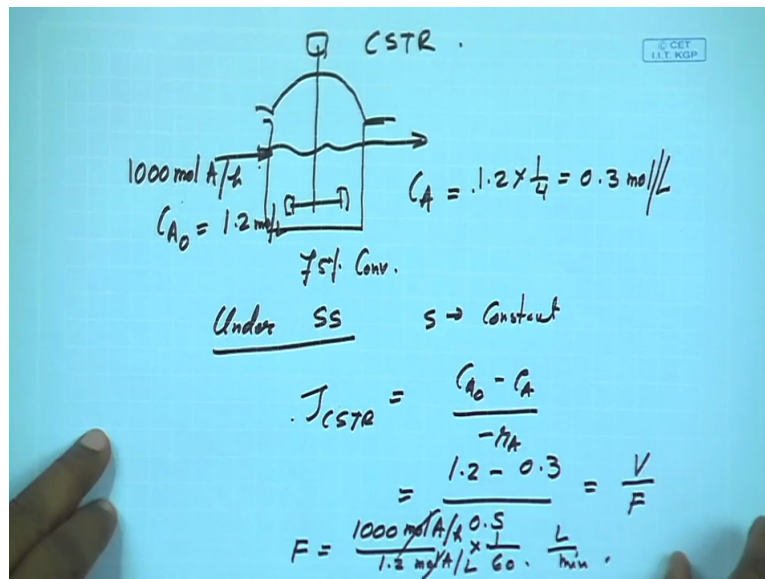 CSTR .
© CET
I.I.T. KGP
1000 mol A/h
C_A0 = 1.2 mol/L
C_A = .1.2 × 1/4 = 0.3 mol/L
75% Conv.
Under SS S → Constant
. τ_CSTR = (C_A0 - C_A) / (-r_A)
= (1.2 - 0.3) / 0.5 = V/F
F = (1000 mol A/h) / (1.2 mol A/L) × 1/60 . L/min .